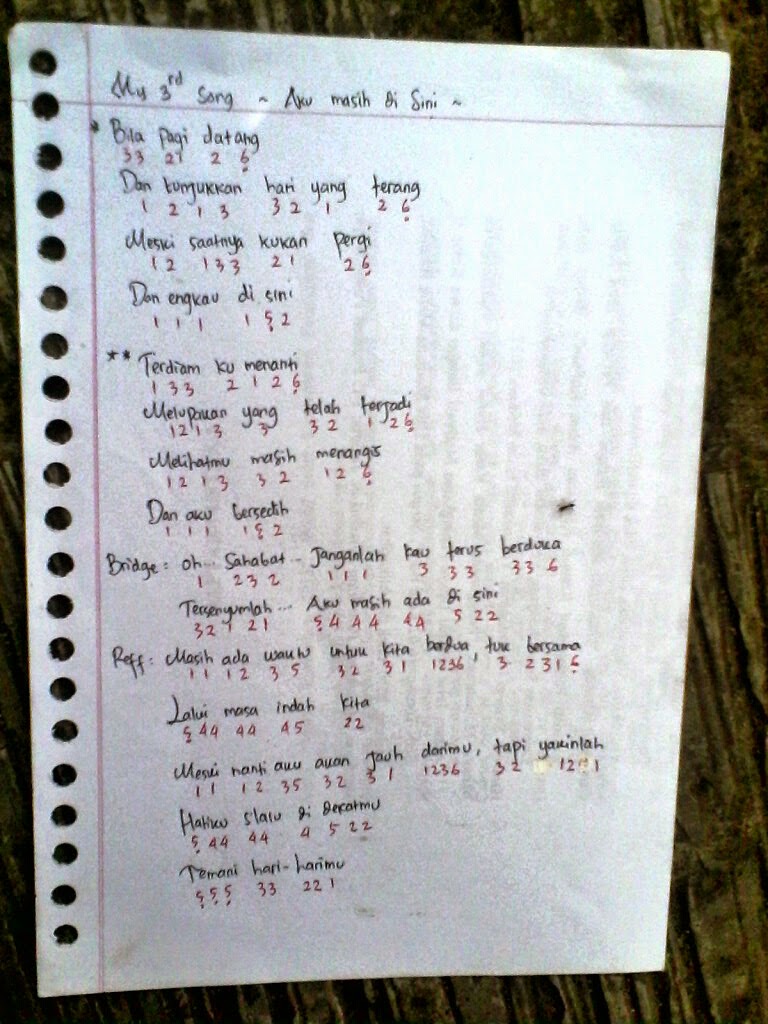 My 3rd Song ~ Aku masih di Sini ~
* Bila pagi datang
33 21 2 6̣
Dan tunjukkan hari yang terang
1 2 1 3 3 2 1 2 6̣
Meski saatnya kukan pergi
1 2 1 3 3 2 1 2 6̣
Dan engkau di sini
1 1 1 1 5̣ 2
** Terdiam ku menanti
1 3 3 2 1 2 6̣
Melupakan yang telah terjadi
1 2 1 3 3 3 2 1 2 6̣
Melihatmu masih menangis
1 2 1 3 3 2 1 2 6̣
Dan aku bersedih
1 1 1 1 5̣ 2
Bridge : Oh... Sahabat... Janganlah kau terus berduka
1 2 3 2 1 1 1 3 3 3 3 3 6
Tersenyumlah... Aku masih ada di sini
3 2 1 2 1 5̣ 4 4 4 4 4 5 2 2
Reff : Masih ada waktu untuk kita berdua, tuk bersama
1 1 1 2 3 5 3 2 3 1 1236 3 2 3 1 6̣
Lalui masa indah kita
5̣ 44 44 45 22
Meski nanti aku akan jauh darimu, tapi yakinlah
1 1 1 2 35 32 3 1 1236 3 2 12 1
Hatiku s'lalu di dekatmu
5̣ 44 44 4 5 22
Temani hari-harimu
5̣ 5̣ 5̣ 33 22 1